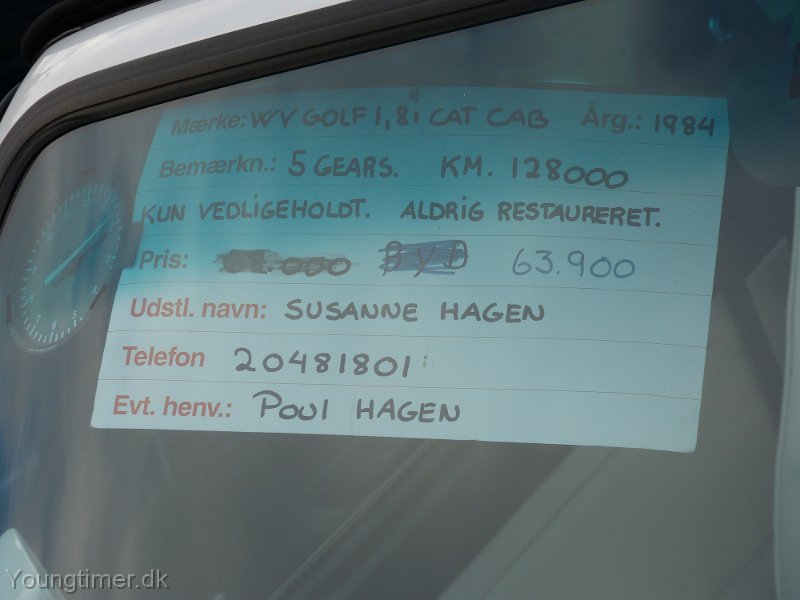 Mærke: WV GOLF 1,8i CAT CAB Årg.: 1984
Bemærkn.: 5 GEARS. KM. 128000
KUN VEDLIGEHOLDT. ALDRIG RESTAURERET.
Pris: BYD 63.900
Udstl. navn: SUSANNE HAGEN
Telefon 20481801
Evt. henv.: POUl HAGEN
Youngtimer.dk